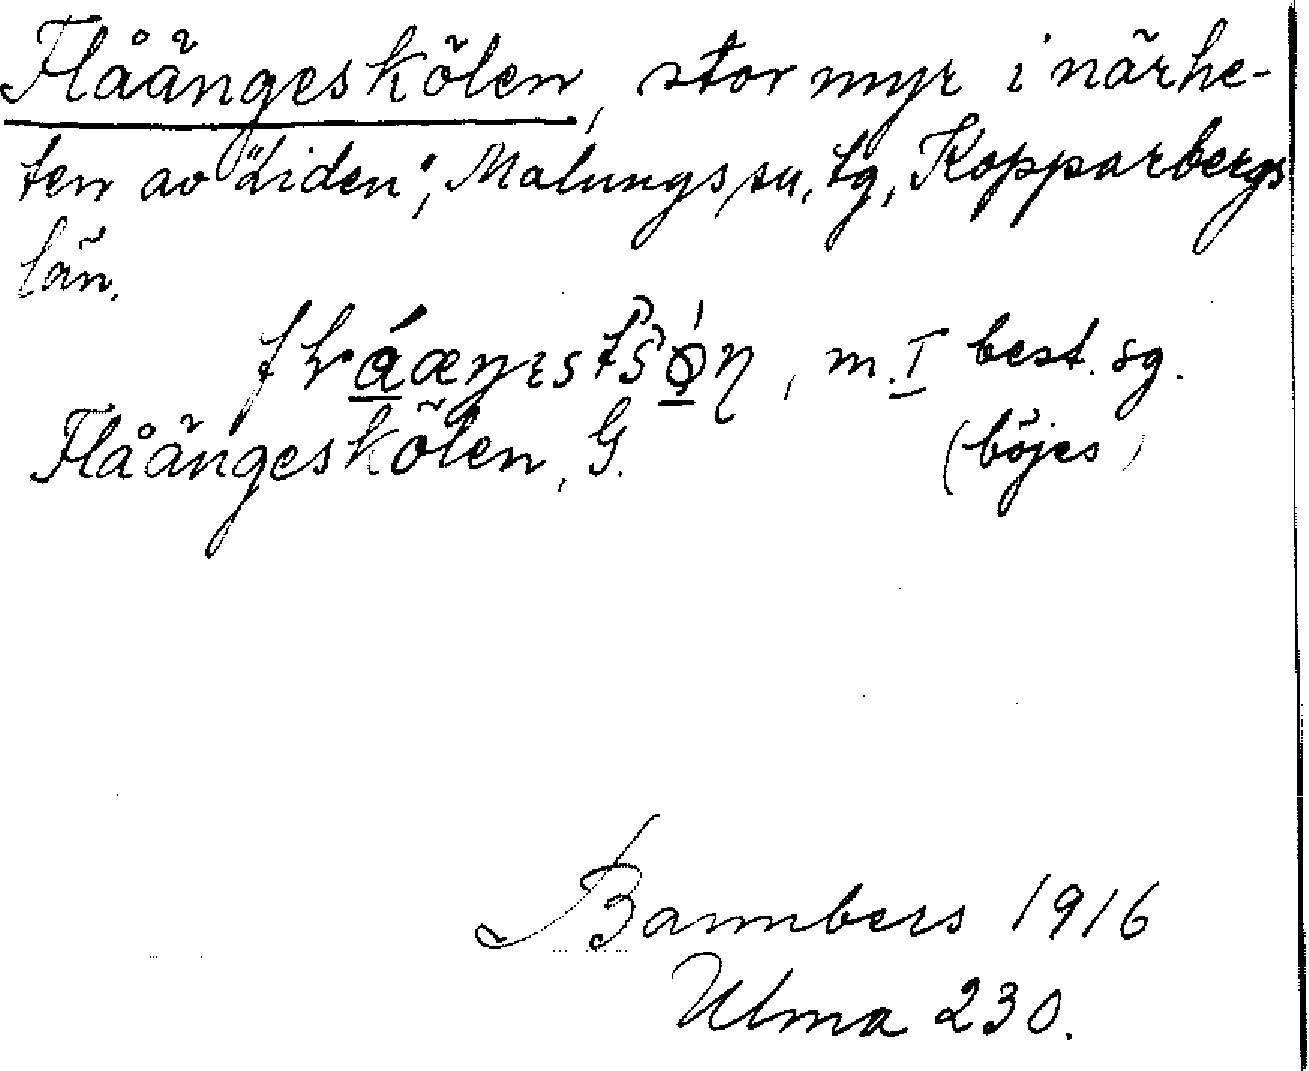 Flåängeskölen, stor myr i närhe-
ten av "Liden", Malungs sn, tg, Kopparbergs
län.
m. I best. sg.
Flåängeskölen, G. (böjes)
Bannbers 1916
Ulma 230.